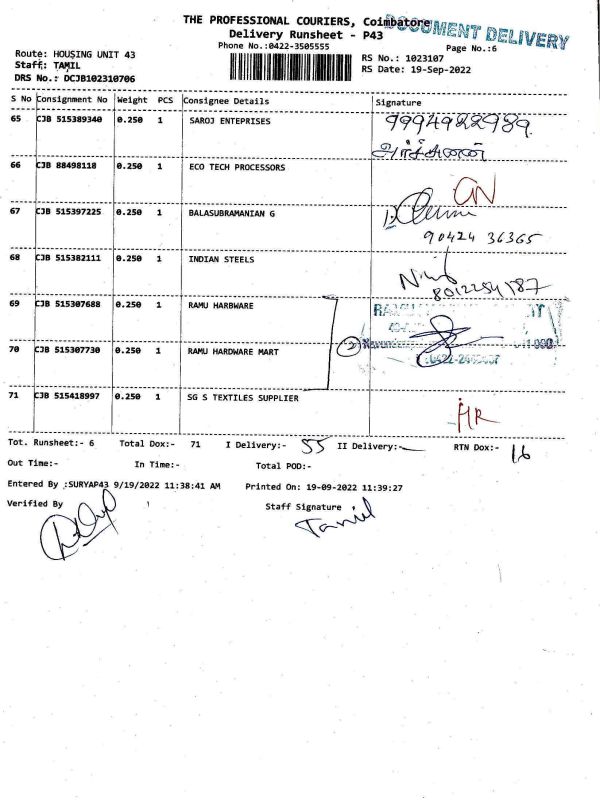 THE PROFESSIONAL COURIERS, Coimbatore
DOCUMENT DELIVERY
Delivery Runsheet - P43
Phone No.:0422-3505555
Page No.:6
Route: HOUSING UNIT 43
RS No.: 1023107
Staff: TAMIL
RS Date: 19-Sep-2022
DRS No.: DCJB102310706
S No Consignment No Weight PCS Consignee Details Signature
65 CJB 515389340 0.250 1 SAROJ ENTEPRISES 9994922989
அர்ச்சுனன்
66 CJB 88498118 0.250 1 ECO TECH PROCESSORS
67 CJB 515397225 0.250 1 BALASUBRAMANIAN G
90424 36365
68 CJB 515382111 0.250 1 INDIAN STEELS
8012254187
69 CJB 515307688 0.250 1 RAMU HARBWARE
70 CJB 515307730 0.250 1 RAMU HARDWARE MART 2
71 CJB 515418997 0.250 1 SG S TEXTILES SUPPLIER
Tot. Runsheet:- 6 Total Dox:- 71 I Delivery:- 55 II Delivery:- RTN Dox:- 16
Out Time:- In Time:- Total POD:-
Entered By :SURYAP43 9/19/2022 11:38:41 AM Printed On: 19-09-2022 11:39:27
Verified By Staff Signature
Tamil